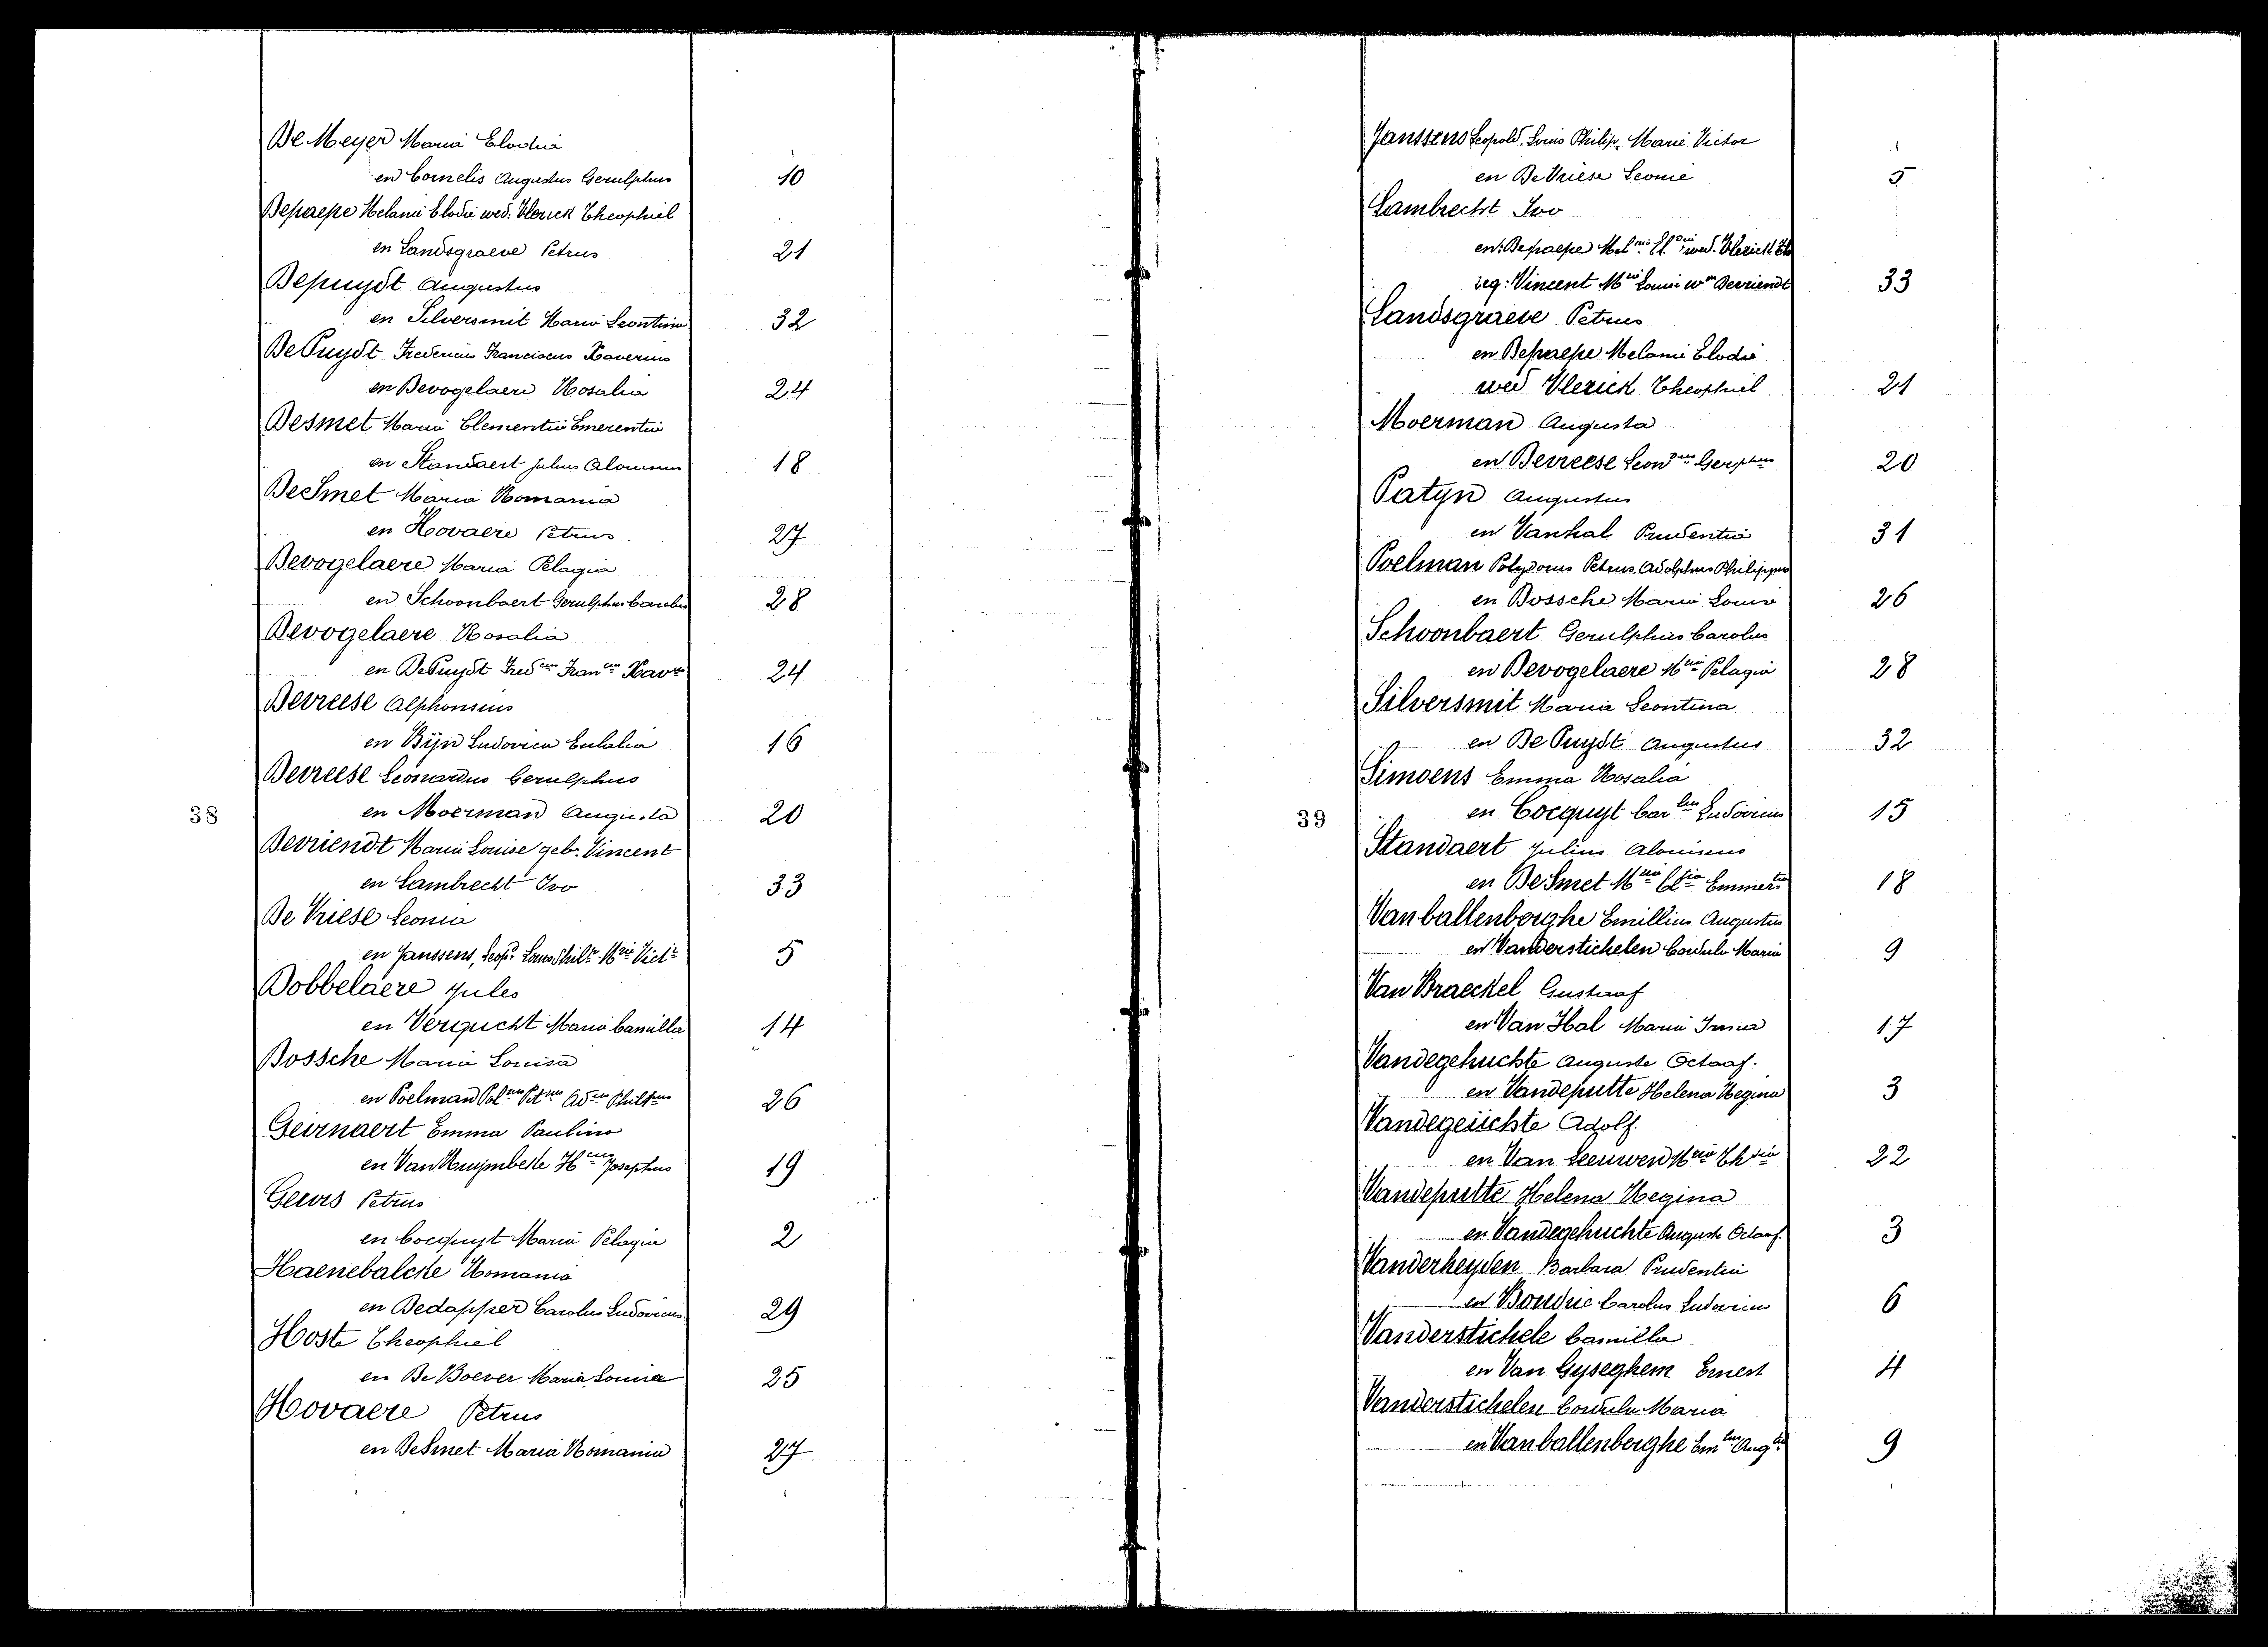 De Meyer Maria Elodia
en Cornelis Augustus Gerulphus 10
Depaepe Melanie Elodie wed. Vlerick Theophiel
en Landsgraeve Petrus 21
Depuydt Augustus
en Silversmit Maria Leontina 32
De Puydt Fredericus Franciscus Xaverius
en Devogelaere Rosalia 24
Desmet Maria Clementia Emerentia
en Standaert Julius Aloisius 18
De Smet Maria Romania
en Hovaere Petrus 27
Devogelaere Maria Pelagia
en Schoonbaert Gerulphus Carolus 28
Devogelaere Rosalia
en De Puydt Fred cus Fran cus Xav us 24
Devreese Alphonsius
en Bijn Ludovica Eulalia 16
Devreese Leonardus Gerulphus
38 en Moerman Augusta 20
Devriendt Maria Louise geb. Vincent
en Lambrecht Ivo 33
De Vriese Leonia
en Janssens, Leop d Louis Phil e M rie Vict r 5
Dobbelaere Jules
en Verqucht Maria Camilla 14
Dossche Maria Louisa
en Poelman Pol us Pet us Ad us Phil us 26
Geirnaert Emma Paulina
en Van Ruymbeke H cus Josephus 19
Gevers Petrus
en Cocquyt Maria Pelagia 2
Haenebalcke Romania
en Dedapper Carolus Ludovicus 29
Hoste Theophiel
en De Boever Maria Louisa 25
Hovaere Petrus
en DeSmet Maria Romania 27
Janssens Leopold, Louis Philip, Marie Victor
en De Vriese Leonie 5
Lambrecht Ivo
en: Depaepe Mel nie El die wed. Vlerick Th
zeg: Vincent M ria Louise w e Devriendt 33
Landsgraeve Petrus
en Depaepe Melanie Elodie
wed Vlerick Theophiel 21
Moerman Augusta
en Devreese Leon dus Ger phus 20
Patyn Augustus
en Vanhal Prudentia 31
Poelman Polydorus Petrus Adolphus Philippus
en Dossche Maria Louisa 26
Schoonbaert Gerulphus Carolus
en Devogelaere M ria Pelagia 28
Silversmit Maria Leontina
en De Puydt Augustus 32
Simoens Emma Rosalia
39 en Cocquyt Car lus Ludovicus 15
Standaert Julius Aloisius
en DeSmet M ria Cl tia Emmer tia 18
Vanballenberghe Emillius Augustus
en Vanderstichelen Cordula Maria 9
Van Braeckel Gustaaf
en Van Hal Maria Irma 17
Vandegehuchte Auguste Octaaf.
en Vandeputte Helena Regina 3
Vandegeüchte Adolf.
en Van Leeuwen M ria 22
Vandeputte Helena Regina
en Vandegehuchte Auguste Octaaf. 3
Vanderheyden Barbara Prudentia
en Carolus Ludovicus 6
Vanderstichele Camilla
en Van Gyseghem Ernest 4
Vanderstichelen Cordula Maria
en Vanballenberghe Em lius Aug us 9